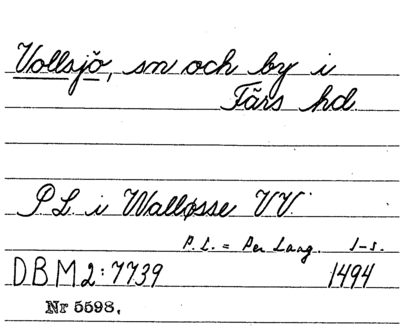 Vollsjö, sn och by i
Färs hd.
P L. i Walløsse VV.
P. L. = Per Lang. 1-s.
DBM2:7739 1494
Nr 5598.